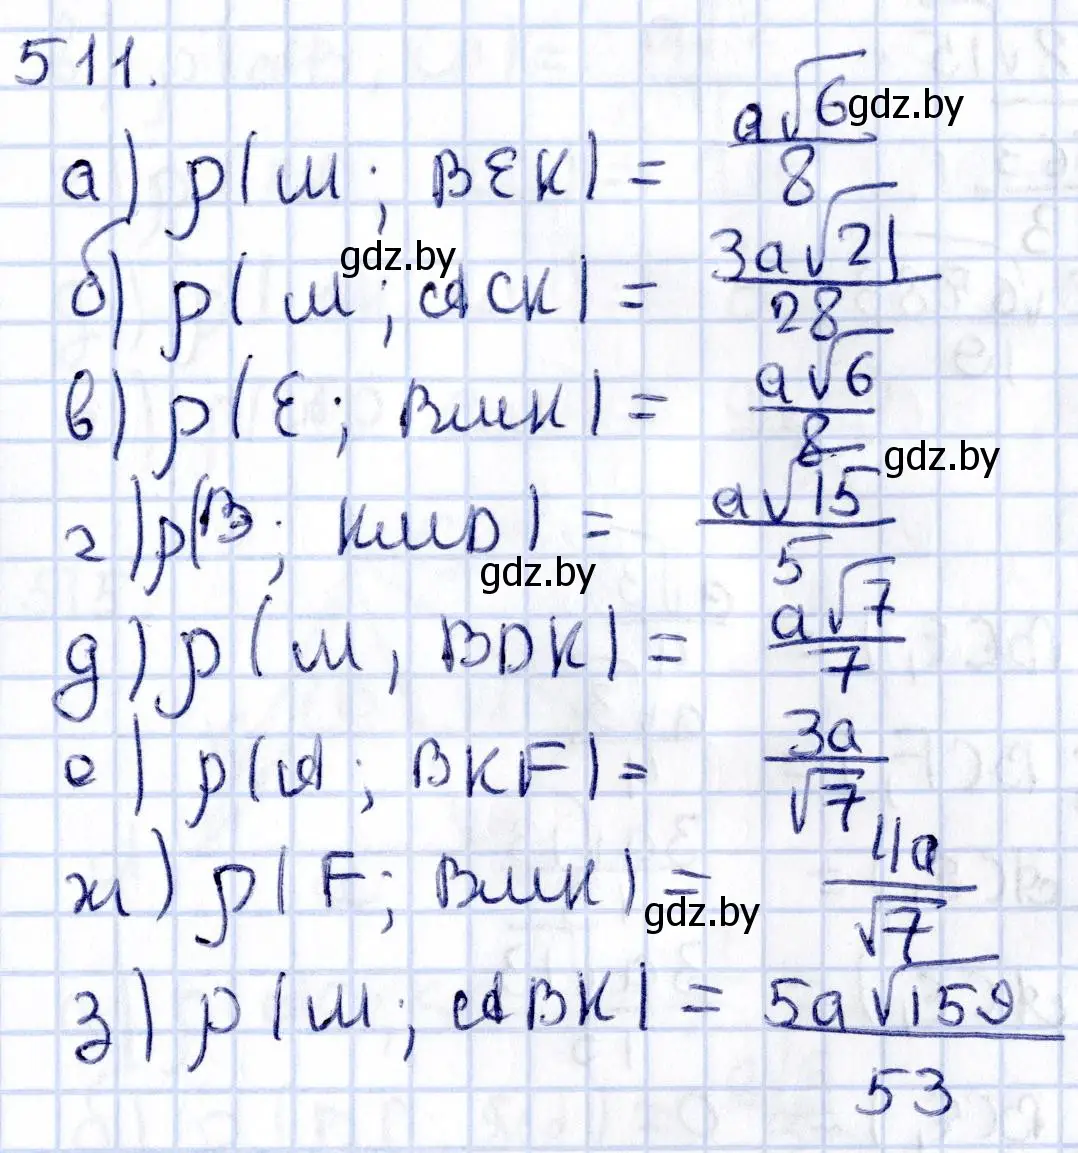 511.
а) ρ(M; BEK) = a√6/8
gdz.by
б) ρ(M; ACK) = 3a√21/28
gdz.by
в) ρ(E; BMK) = a√6/8
gdz.by
г) ρ(B; KMD) = a√15/5
gdz.by
д) ρ(M, BDK) = a√7/7
е) ρ(A; BKF) = 3a/√7
ж) ρ(F; BMK) = 4a/√7
gdz.by
з) ρ(M; ABK) = 5a√159/53